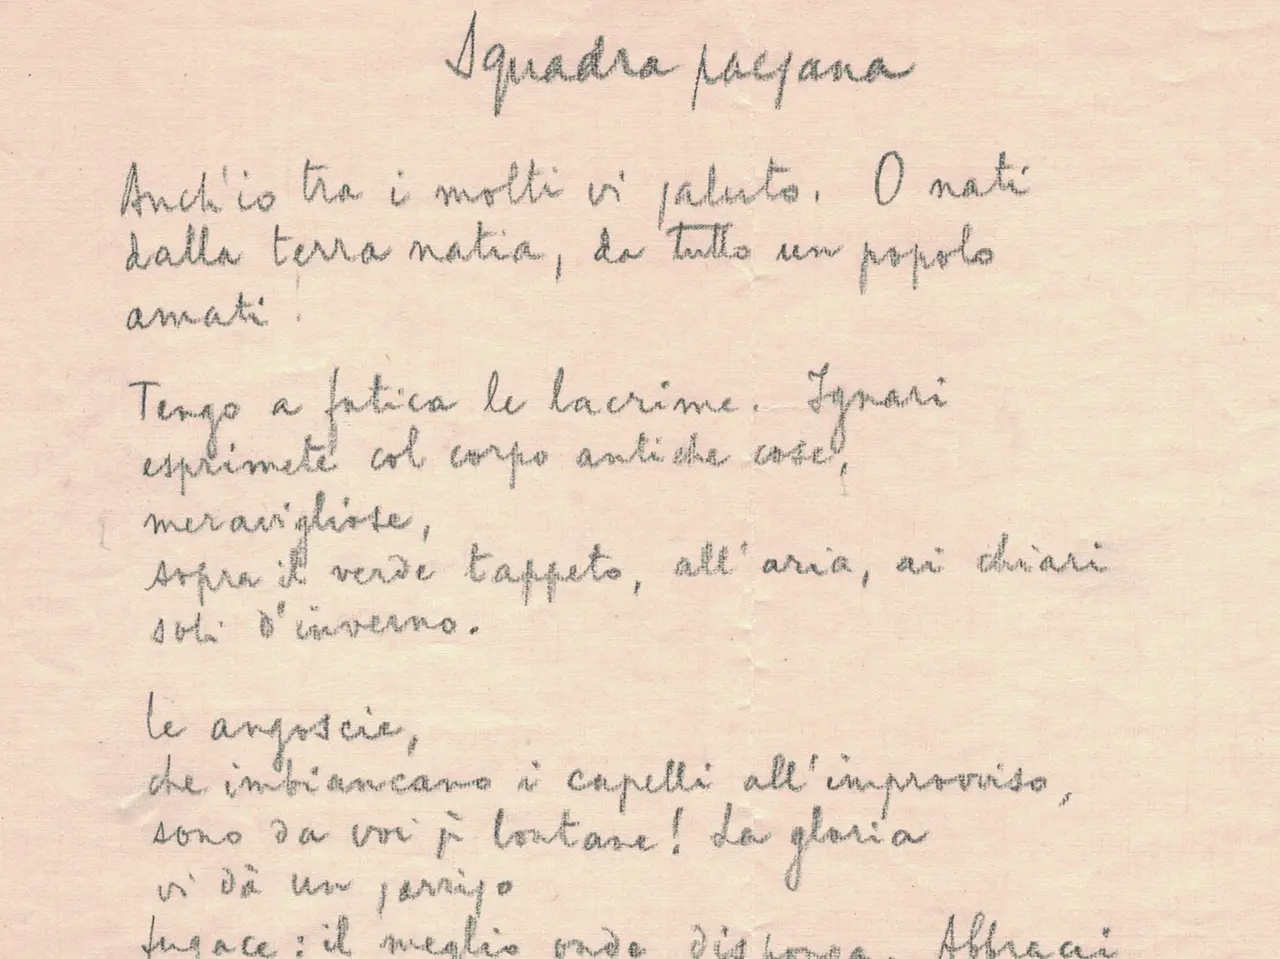 Squadra paesana
Anch'io tra i molti vi saluto. O nati
dalla terra natia, da tutto un popolo
amati!
Tengo a fatica le lacrime. Ignari
esprimete col corpo antiche cose,
meravigliose,
sopra il verde tappeto, all'aria, ai chiari
soli d'inverno.
Le angoscie,
che imbiancano i capelli all'improvviso,
sono da voi sì lontane! La gloria
vi dà un sorriso
fugace: il meglio onde disponga. Abbracci